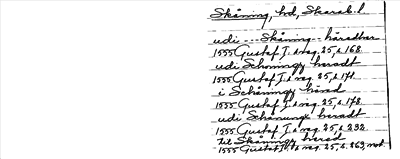 Skåning, hd, Skarab. l.
udi --- Skåning -- häredher
1555 Gustaf I:s reg. 25, s. 168.
udi Schoningz heradt
1555 Gustaf I:s reg. 25, s. 171.
i Schåningz häred
1555 Gustaf I:s reg. 25, s. 178.
udi Schånungz heradt
1555 Gustaf I:s reg. 25, s. 232.
til Skåning herad
1555 Gustaf I:s reg. 25, s. 263, not.